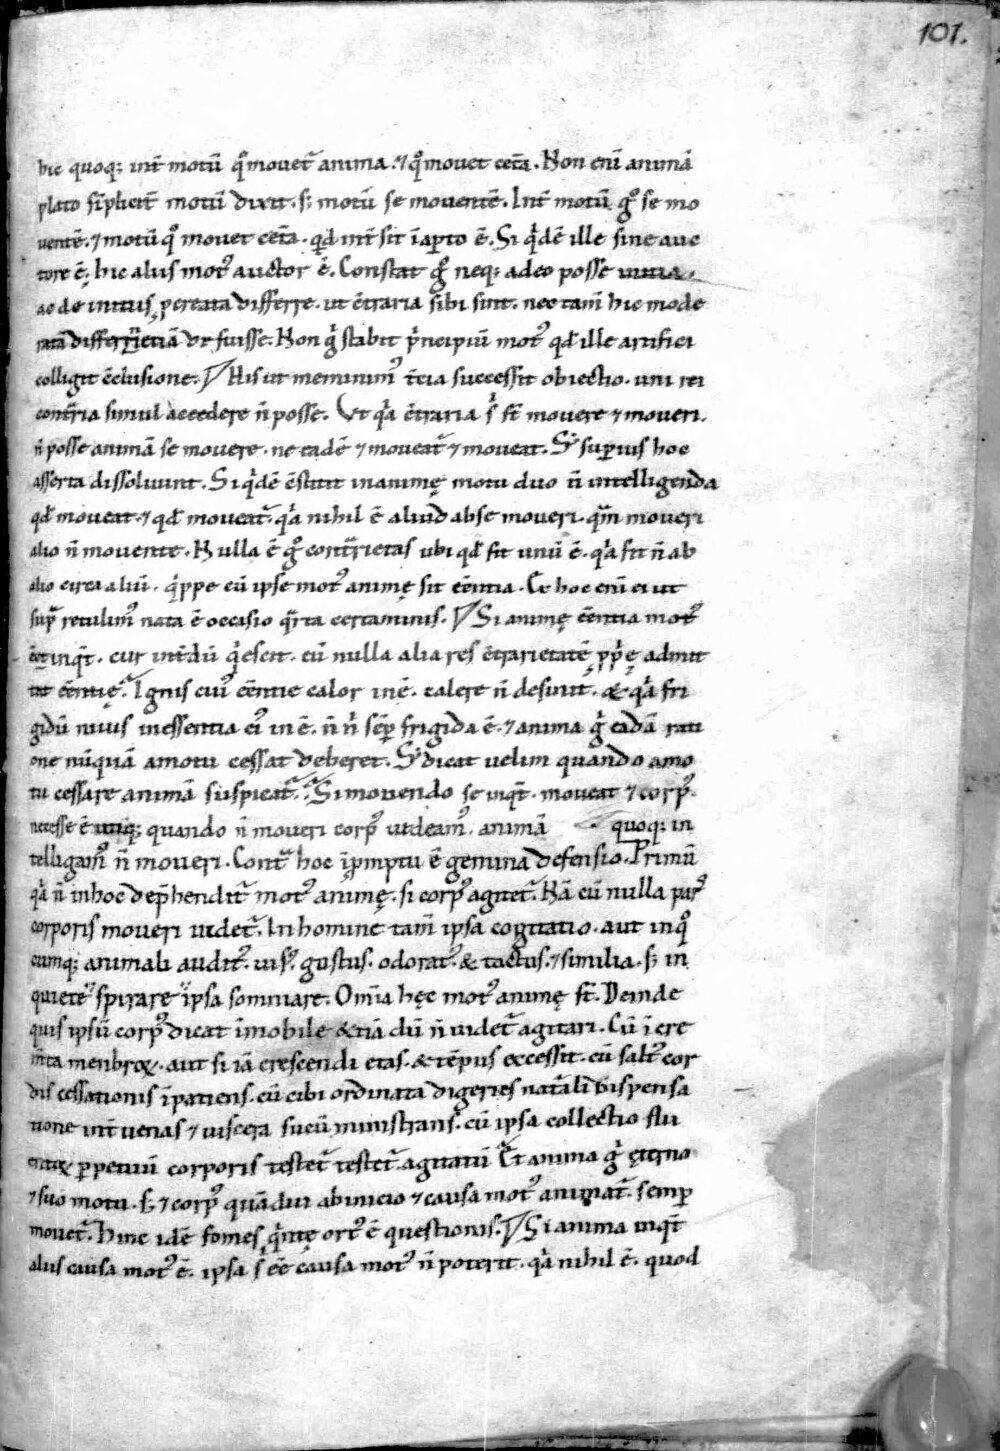 101.
hic quoq; int̄ motū q° mouet᷑ anima. ⁊ q° mouet cet̄a. Non eni animā
plato sīplicit̄ motū dixit. s; motū se mouentē. Int̄ motū g° se mo
uentē. ⁊ motū q° mouet cet̄a. qđ int̄ sit ī aꝑto ē. Si qͥdē ille sine auc
tore ē. hic alius mot᷒ auctor ē. Constat g° neq; adeo posse initia.
ac de initiis ꝓcreata differre. ut c̄traria sibi sint. nec tam̄ hic mode
ratā differentiā d̄r fuisse. Non gͥ stabit pͥncipiū mot᷒ qđ ille artifici
colligit c̄clusione. His ut meminim᷒ t̄cia successit obiectio. uni rei
cont̄ria simul accedere n̄ posse. Et qͥa c̄traria s̄ mouere ⁊ moueri.
n̄ posse animā se mouere. ne eadē ⁊ moueat᷑ ⁊ moueat. S; suꝑius hoc
asserta dissoluunt. Si qͥdē c̄stitit in animę motu duo n̄ intelligenda
qđ moueat. ⁊ qđ moueat᷑. qͥa nihil ē aliud ab se moueri. qͣm moueri
alio n̄ mouente. Nulla ē g° contͣrietas ubi qđ fit unū ē. qͥa fit n̄ ab
alio circa aliū. qͥppe cū ipse mot᷒ animę sit eēntia. Et hoc eni ei ut
supͣ retulim᷒ nata ē occasio qͣrta certaminis. Si animę eēntia mot᷒
ē inqͥt. cur int̄dū qͥescit. cū nulla alia res c̄trarietatē ꝓpͥę admit
tit eēntię. Ignis cui᷒ eēntie calor inē. calere n̄ desinit. & qͥa fri
gidū niuis in essentia ei᷒ in ē. n̄ nͥ sēꝑ frigida ē. ⁊ anima gͥ eadā rati
one nūquā a motu cessat deberet. S; dicat uelim quando a mo
tu cessare animā suspicat᷑. Si mouendo se inqͥt. moueat ⁊ corp᷒.
necesse ē utiq; quando n̄ moueri corp᷒ uideam᷒. animā quoq; in
telligam᷒ n̄ moueri. Contͣ hoc ī ꝓmptu ē gemina defensio. Primū
qͥa n̄ in hoc dep̄hendit᷑ mot᷒ animę. si corp᷒ agitet᷑. Nā cū nulla pars
corporis moueri uidet᷑. In homine tam̄ ipsa cogitatio. aut in q°
cumq; animali audit᷒. uis᷒. gustus. odorat᷒. & tactus. ⁊ similia. s; in
quiete spirare ipsa somniare. Om̄ia hęc mot᷒ animę st̄. Deinde
quis ipsū corp᷒ dicat īmobile & iā dū n̄ uidet᷑ agitari. Cū ī cre
m̄ta menbroꝝ. aut si iā crescendi etas. & tēpus excessit. cū salt᷒ cor
dis cessationis īpatiens. cū cibi ordinata digeries natͣli dispensa
tione int̄ uenas ⁊ uiscera sucū ministrans. cū ipsa collectio flu
entoꝝ ꝑpetuū corporis testet᷑ testet᷑ agitatū. Et anima gͥ ęterno
⁊ suo motu. s; ⁊ corp᷒ quādiu ab inicio ⁊ causa mot᷒ animat᷑. semꝑ
mouet᷑. Hinc idē fomes qͥntę ort᷒ ē questionis. Si anima inqͥt
aliis causa mot᷒ ē. ipsa s̄ eē causa mot᷒ n̄ poterit. qͥa nihil ē. quod